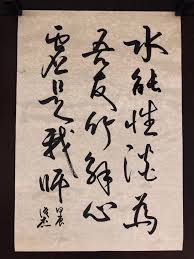 水能性淡為
吾友竹解心
虛是我師